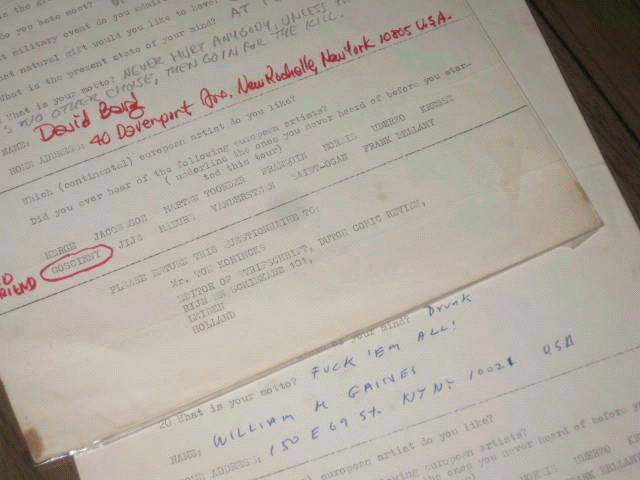 do you
st military event do you admi
hat natural gift would you like to have?
What is the present state of your mind? AT
What is your motto? NEVER HURT ANYBODY, UNLESS
'S NO OTHER CHOSE, THEN GO IN FOR THE KILL.
NAME: David Berg
HOME ADDRESS: 40 Davenport Ave. New Rochelle, New York 10805 U.S.A.
Which (continental) european artist do you like?
Did you ever hear of the following european artists?
( underline the ones you never heard of before you star-
ted this tour)
HERGE JACOBSSON MARTEN TOONDER FRANQUIN UBERTO
GOSCINNY JIJE VANDERSTEEN SAINT-OGAN FRANK BELLAMY
RIEND
PLEASE RETURN THIS QUESTIONNAIRE TO:
Mr. VON KONINCKS
EDITOR OF STRIPSCHRIFT, DUTCH COMIC REVIEW,
LEIDEN
HOLLAND
of your mind? Drunk
20 What is your motto? FUCK 'EM ALL!
NAME: WILLIAM M GAINES
HOME ADDRESS: 150 E 69 St. NY NY 10021 USA
european artist do you like?
of the following european artists?
the ones you never heard of before yo
FRANK BELLAM